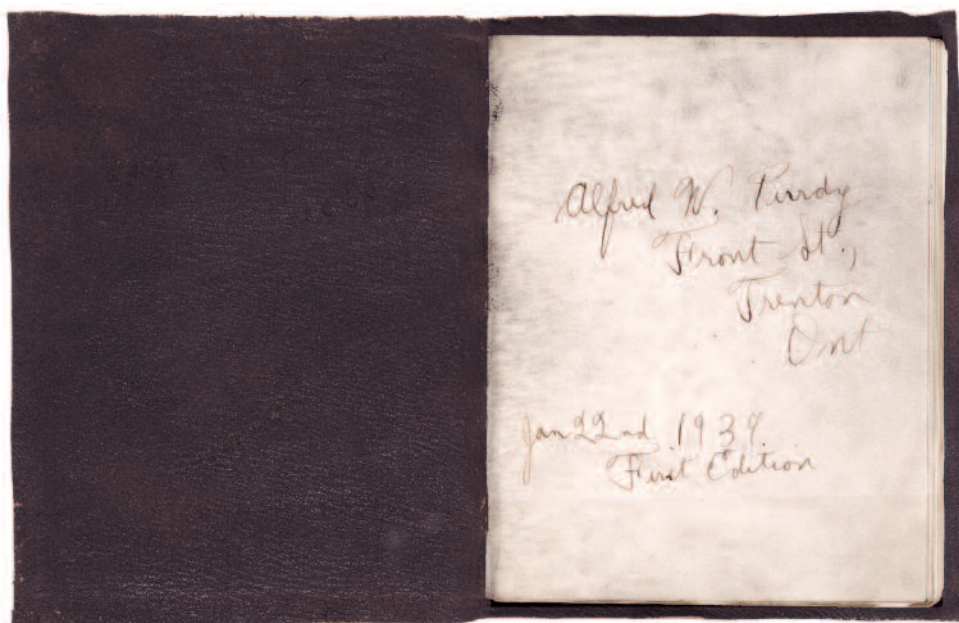 Alfred W. Purdy
Front St.,
Trenton
Ont
Jan 22nd 1939
First Edition